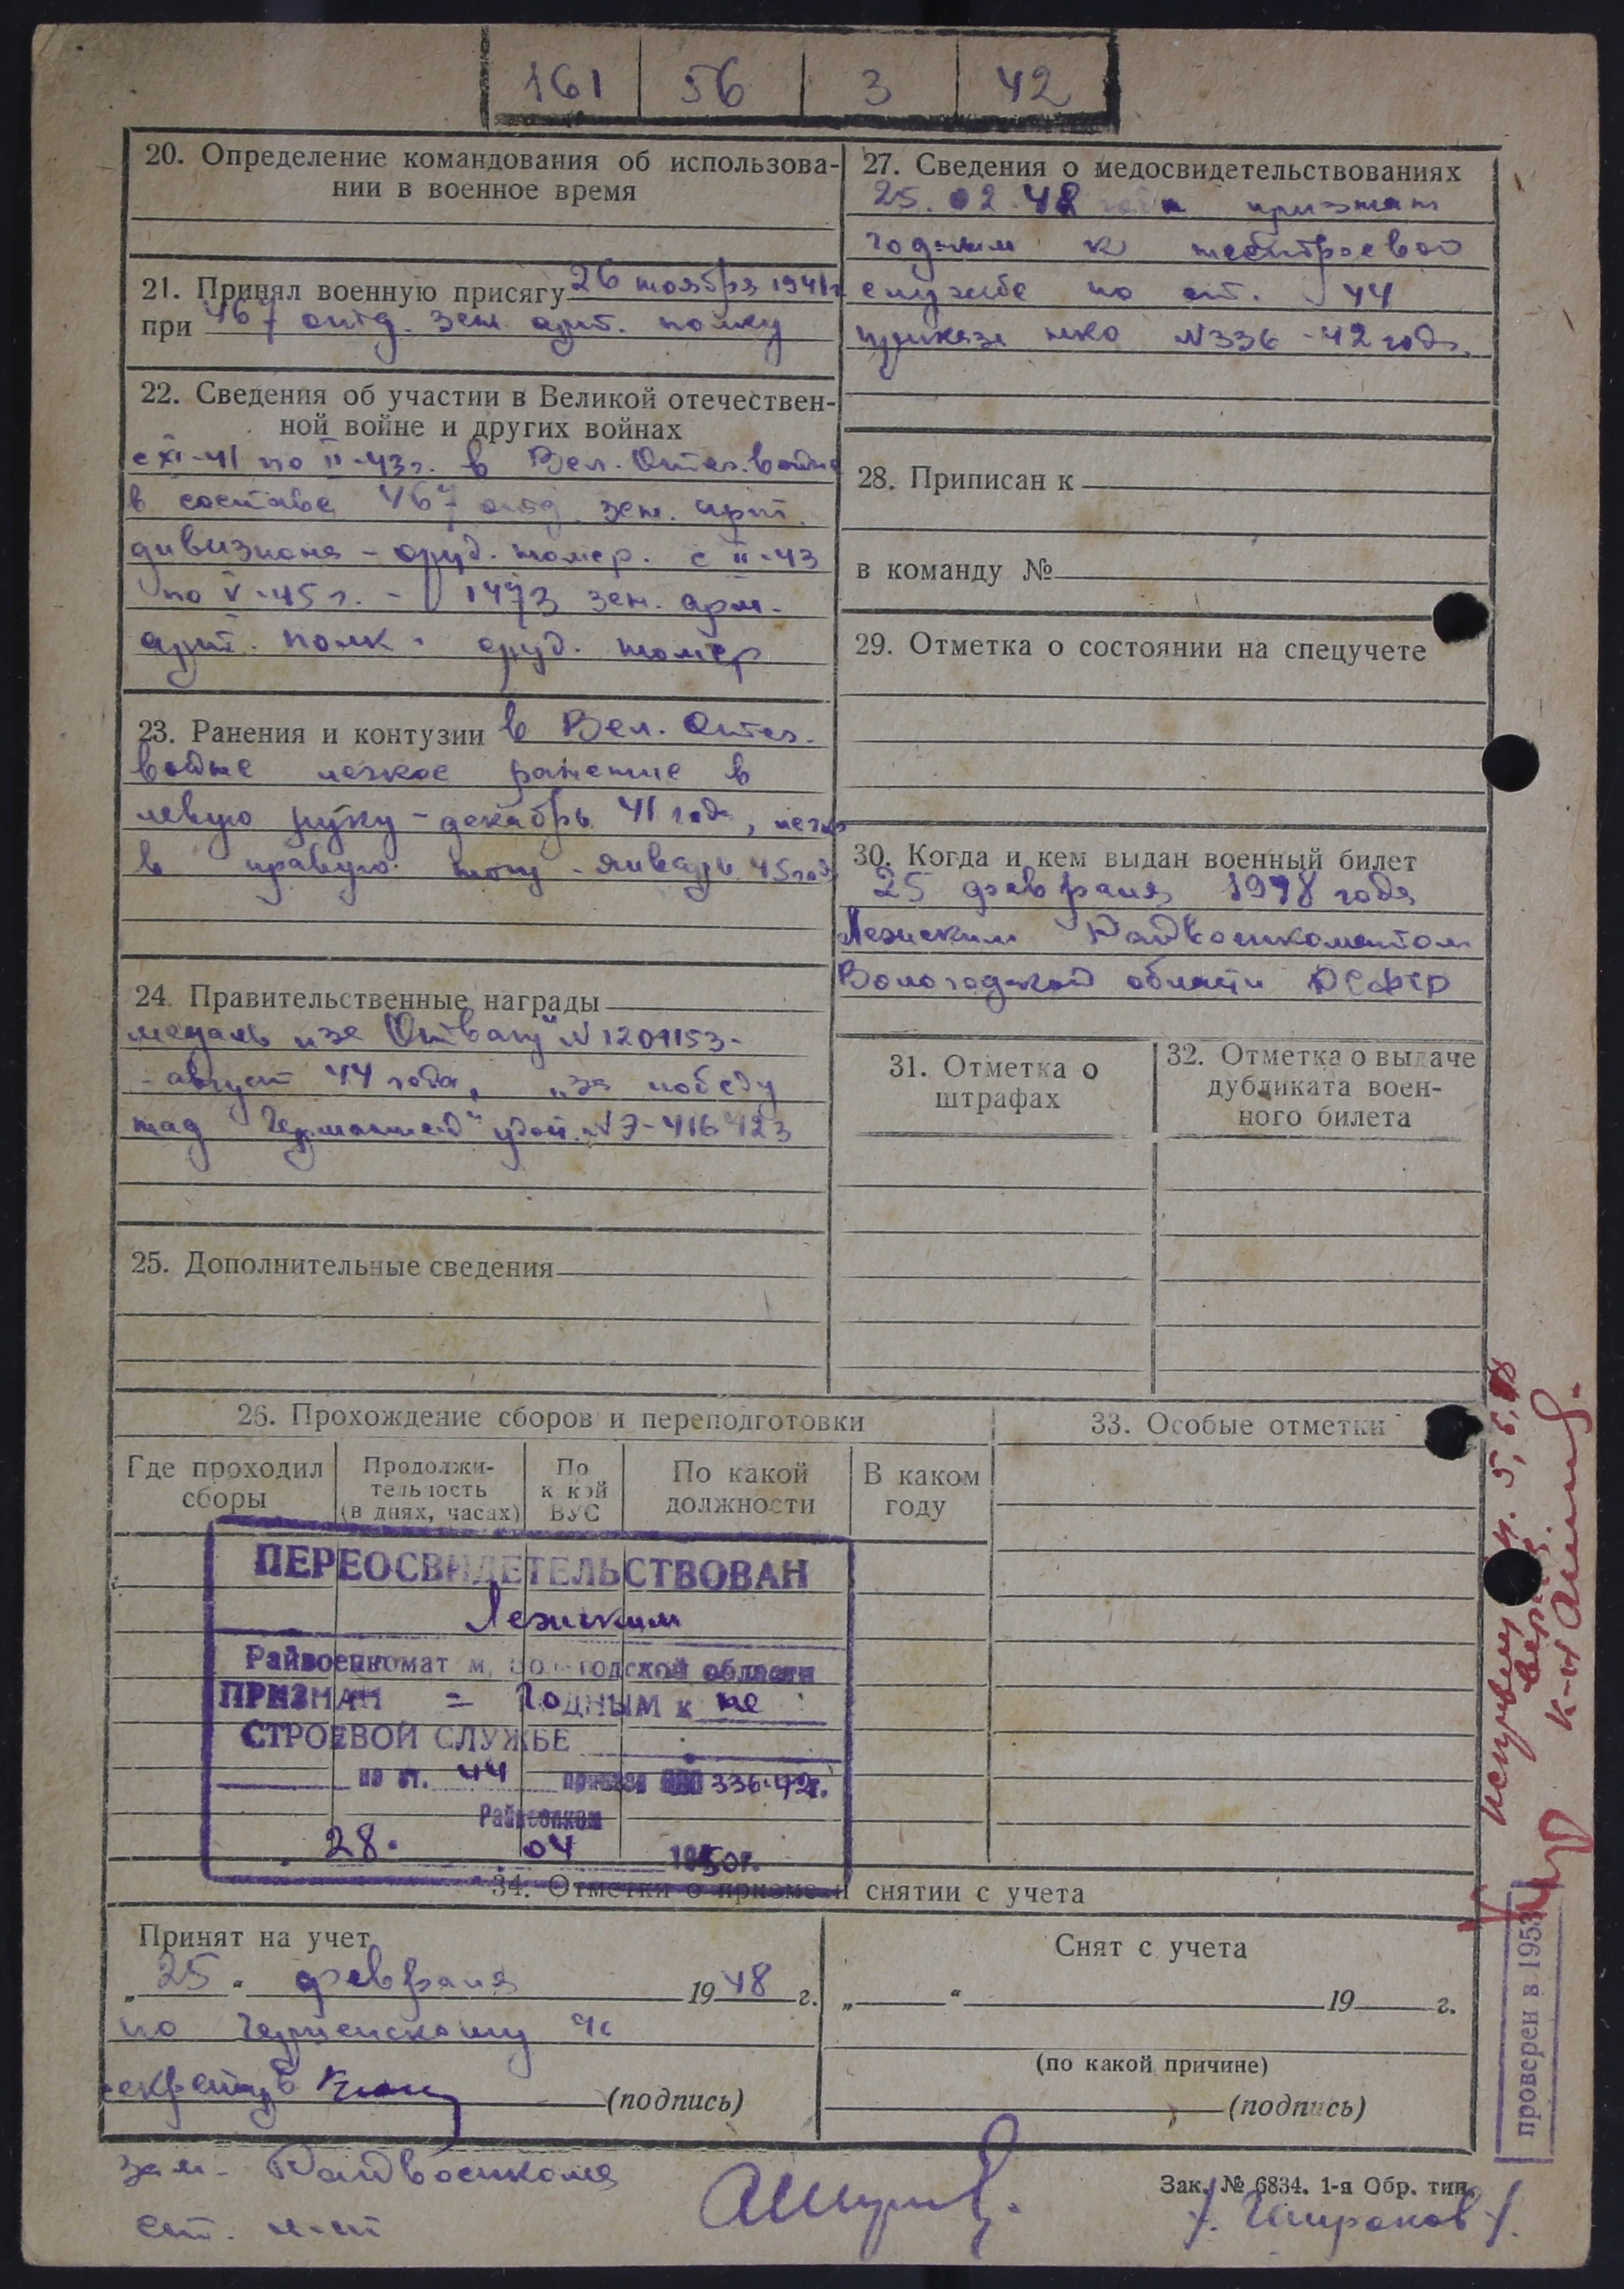 161 56 3 42
20. Определение командования об использова-
нии в военное время
21. Принял военную присягу 26 ноября 1941г
при 467 отд. зен. арт. полку
22. Сведения об участии в Великой отечествен-
ной войне и других войнах
с XI-41 по II-43г. в Вел. Отеч. войне
в составе 467 отд. зен. арт.
дивизиона - оруд. номер. с II-43
по V-45 г. - 1473 зен. арм.
арт. полк - оруд. номер
23. Ранения и контузии в Вел. Отеч.
войне легкое ранение в
левую руку - декабрь 41 года, легк
в правую ногу - январь 45 год
24. Правительственные награды
медаль „за Отвагу" N 1209153-
- август 44 года, „за победу
над Германией" удост. N Э-416423
25. Дополнительные сведения
27. Сведения о медосвидетельствованиях
25.02.48 года признан
годным к нестроевой
службе по ст. 44
приказа нко N336-42 года.
28. Приписан к
в команду №
29. Отметка о состоянии на спецучете
30. Когда и кем выдан военный билет
25 февраля 1948 года
Лежским Райвоенкоматом
Вологодской области РСФСР
31. Отметка о
штрафах
32. Отметка о выдаче
дубликата воен-
ного билета
26. Прохождение сборов и переподготовки
Где проходил
сборы
Продолжи-
тельность
(в днях, часах)
По
какой
ВУС
По какой
должности
В каком
году
33. Особые отметки
ПЕРЕОСВИДЕТЕЛЬСТВОВАН
Лежским
Райвоенкомат м, Вологодской области
ПРИЗНАН = Годным к не
СТРОЕВОЙ СЛУЖБЕ
по ст. 44 приказа НКО 336-42г.
Райвоенком
28. 04 1950г.
34. Отметки о приеме и снятии с учета
Принят на учет
„25" февраля 1948 г.
по
секретарь
(подпись)
Снят с учета
„ " 19 г.
(по какой причине)
(подпись)
зам. Райвоенкома
ст. л-нт
Зак. № 6834. 1-я Обр. тип.
/. Широков /.
проверен в 1953